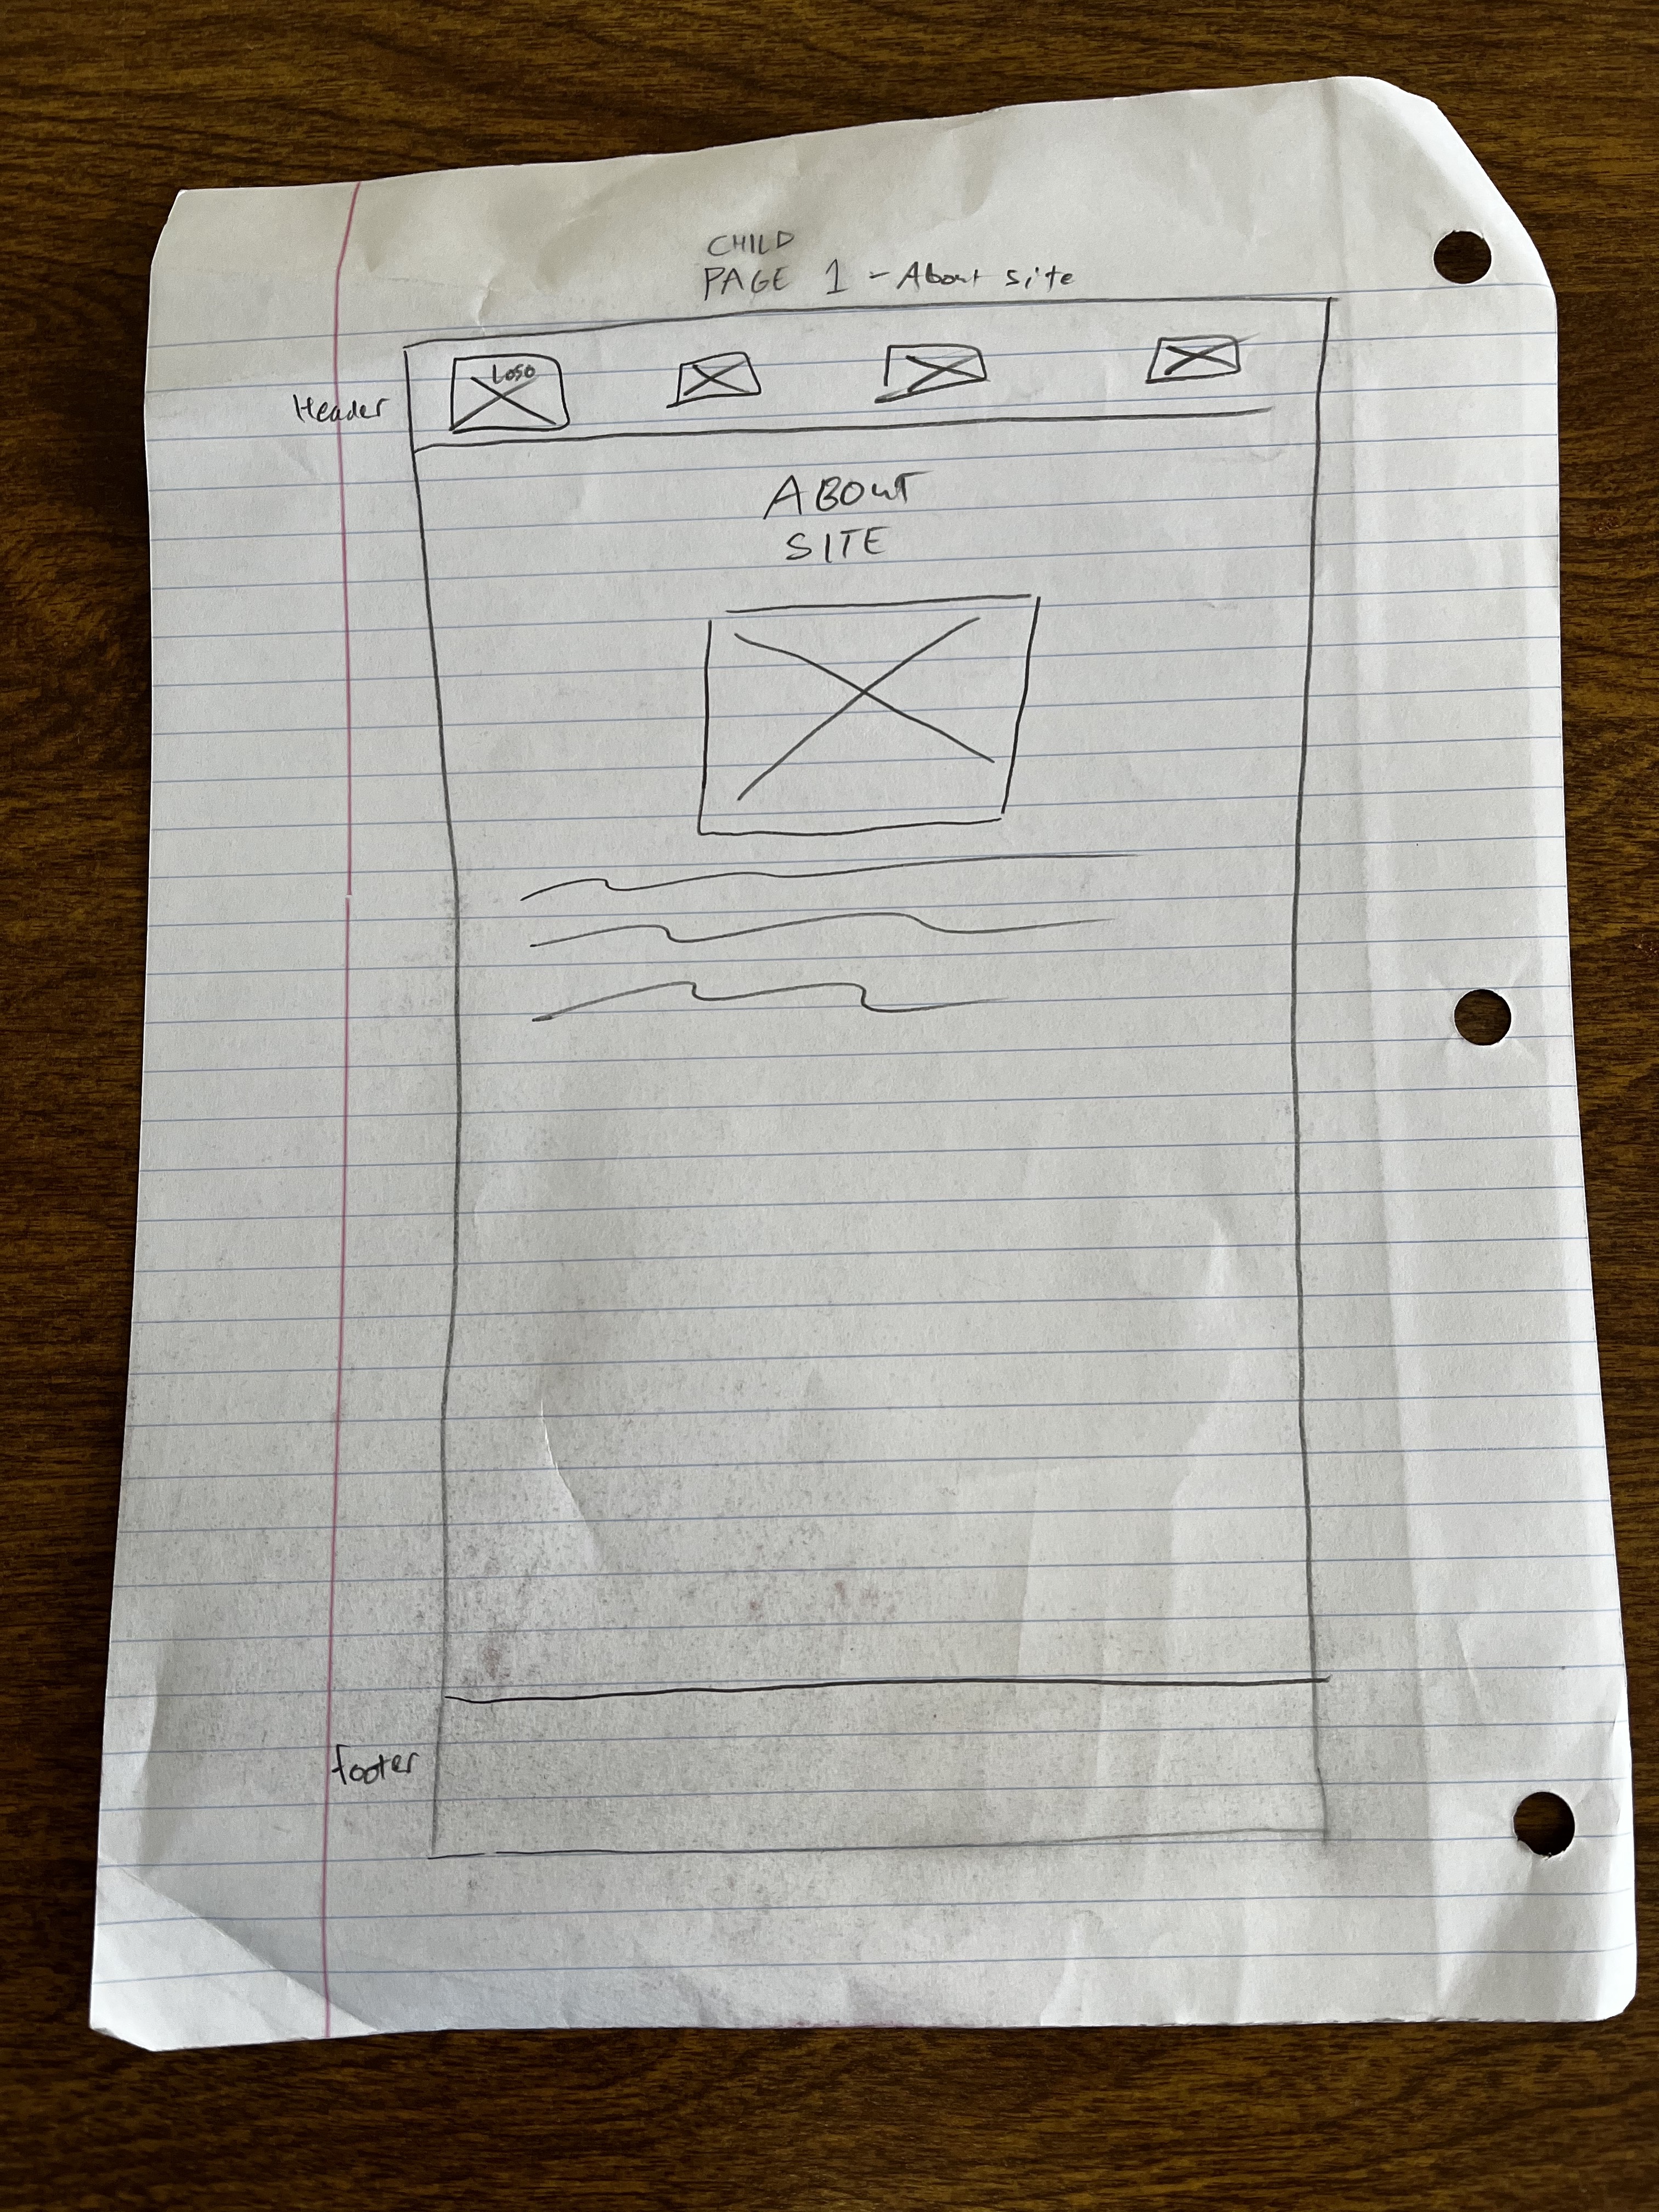 CHILD
PAGE 1 - About site
Logo
Header
ABOUT
SITE
footer